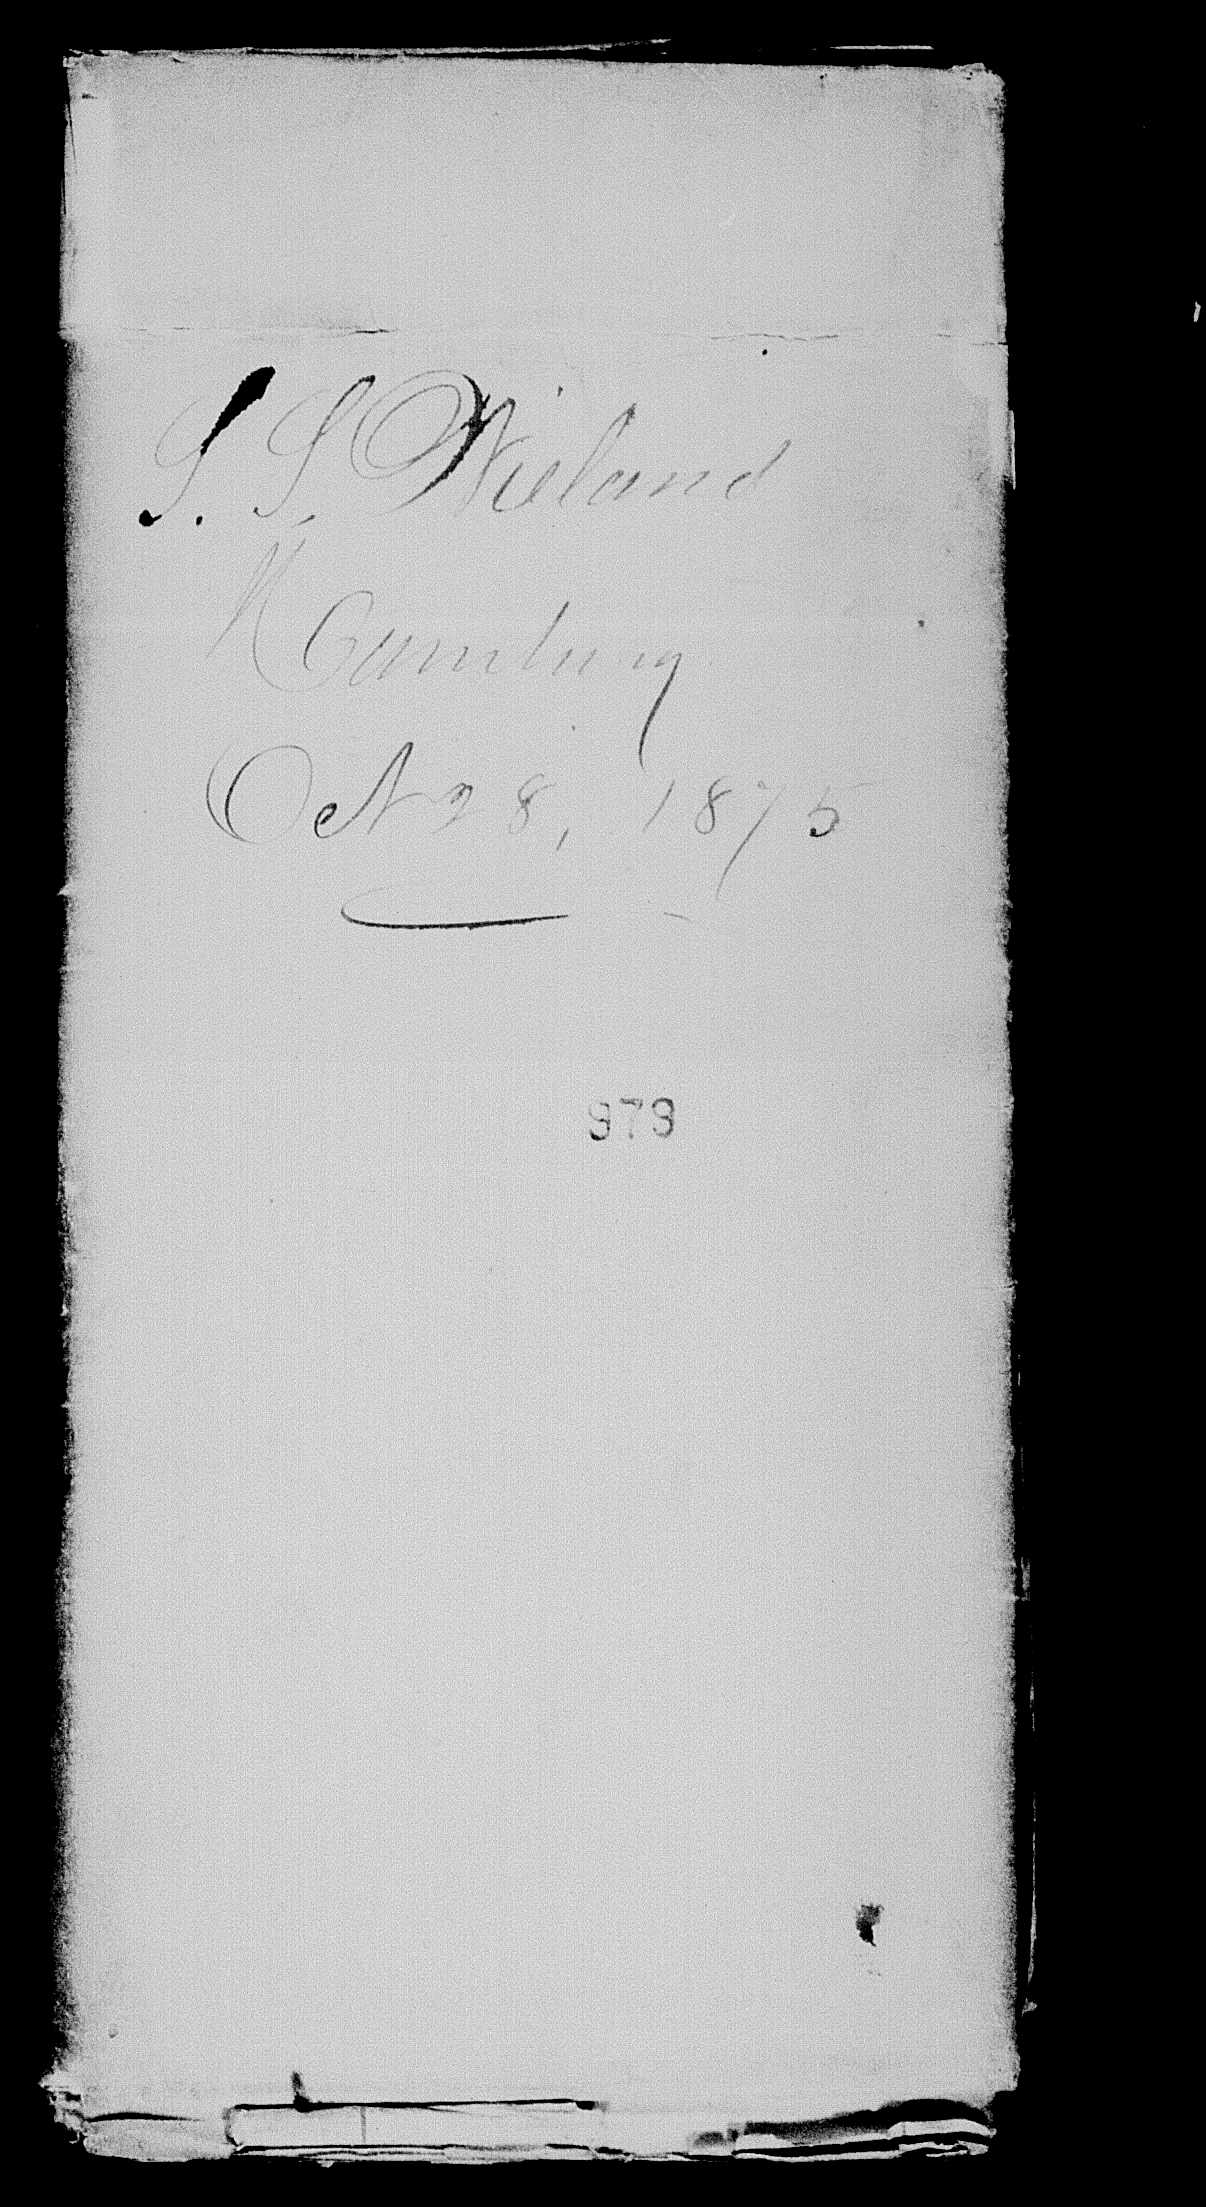 S. S. Wieland
Hamburg
Oct 28, 1875
979